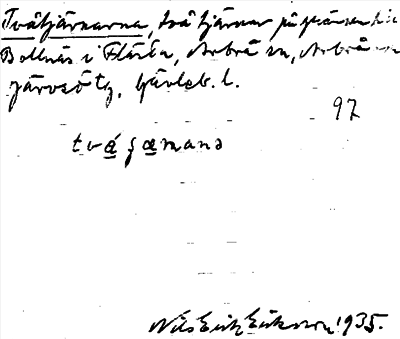 Tvåtjärnarna, två tjärnar på gränsen
Bollnäs i Flästa, Arbrå sn, Arbrå
Järvsö tg, Gävleb. l.
97
två ʃæmanə
Nils Erik Eriksson 1935.